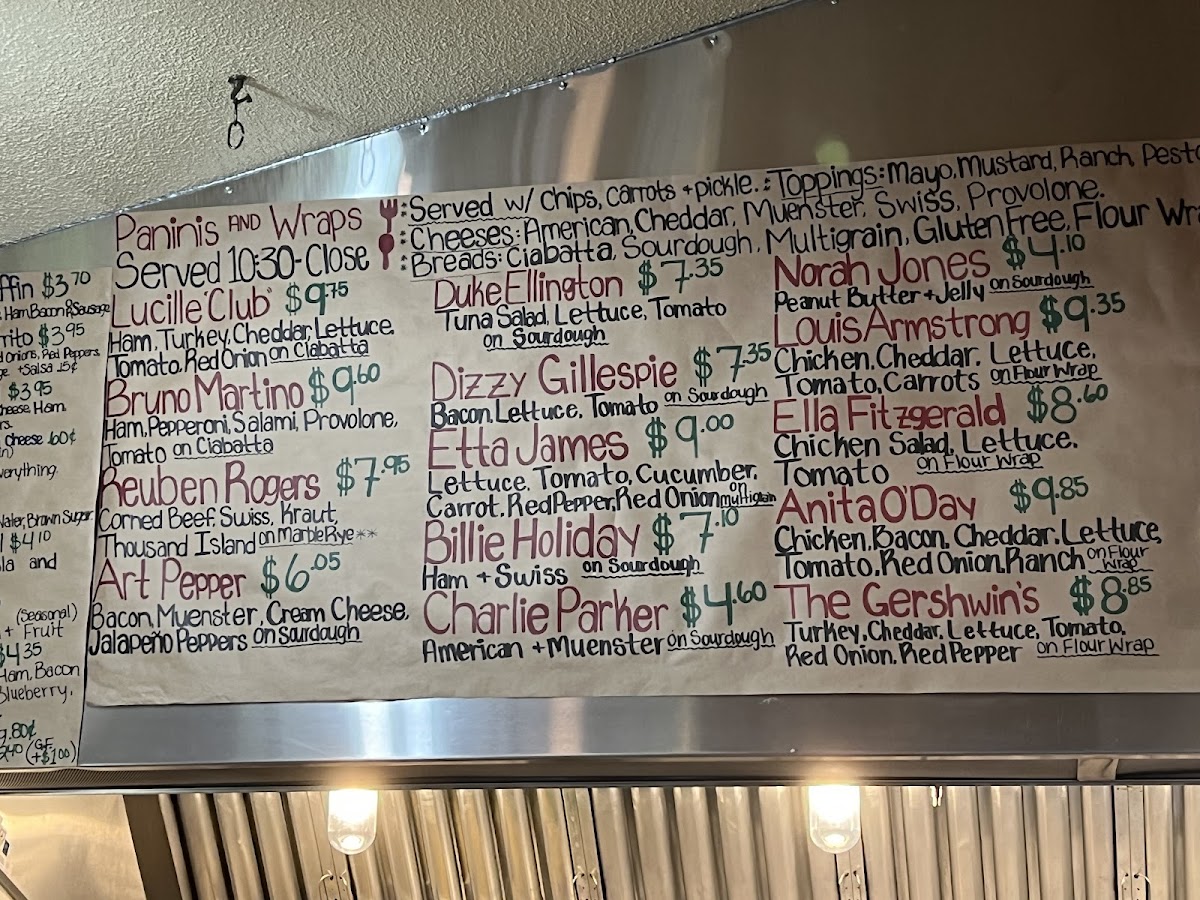 ffin $3.70
Ham, Bacon & Sausage
rrito $3.95
d Onions, Red Peppers
+Salsa 15¢
$3.95
heese, Ham,
rs.
Cheese .60¢
verything
Water, Brown Sugar
$4.10
la and
(Seasonal)
+ Fruit
$4.35
Ham, Bacon
Blueberry,
.80¢
2.40 (G.F. +$1.00)
Paninis AND Wraps
Served 10:30-Close
: Served w/ Chips, Carrots + pickle. : Toppings: Mayo, Mustard, Ranch, Pesto
: Cheeses: American, Cheddar, Muenster, Swiss, Provolone.
: Breads: Ciabatta, Sourdough, Multigrain, Gluten Free, Flour Wra
Lucille "Club" $9.75
Ham, Turkey, Cheddar, Lettuce,
Tomato, Red Onion on Ciabatta
Bruno Martino $9.60
Ham, Pepperoni, Salami, Provolone,
Tomato on Ciabatta
Reuben Rogers $7.95
Corned Beef, Swiss, Kraut,
Thousand Island on Marble Rye**
Art Pepper $6.05
Bacon, Muenster, Cream Cheese,
Jalapeño Peppers on Sourdough
Duke Ellington $7.35
Tuna Salad, Lettuce, Tomato
on Sourdough
Dizzy Gillespie $7.35
Bacon, Lettuce, Tomato on Sourdough
Etta James $9.00
Lettuce, Tomato, Cucumber,
Carrot, Red Pepper, Red Onion on multigrain
Billie Holiday $7.10
Ham + Swiss on Sourdough
Charlie Parker $4.60
American + Muenster on Sourdough
Norah Jones $4.10
Peanut Butter + Jelly on Sourdough
Louis Armstrong $9.35
Chicken, Cheddar, Lettuce,
Tomato, Carrots on Flour Wrap
Ella Fitzgerald $8.60
Chicken Salad, Lettuce,
Tomato on Flour Wrap
Anita O'Day $9.85
Chicken, Bacon, Cheddar, Lettuce,
Tomato, Red Onion, Ranch on Flour Wrap
The Gershwin's $8.85
Turkey, Cheddar, Lettuce, Tomato,
Red Onion, Red Pepper on Flour Wrap